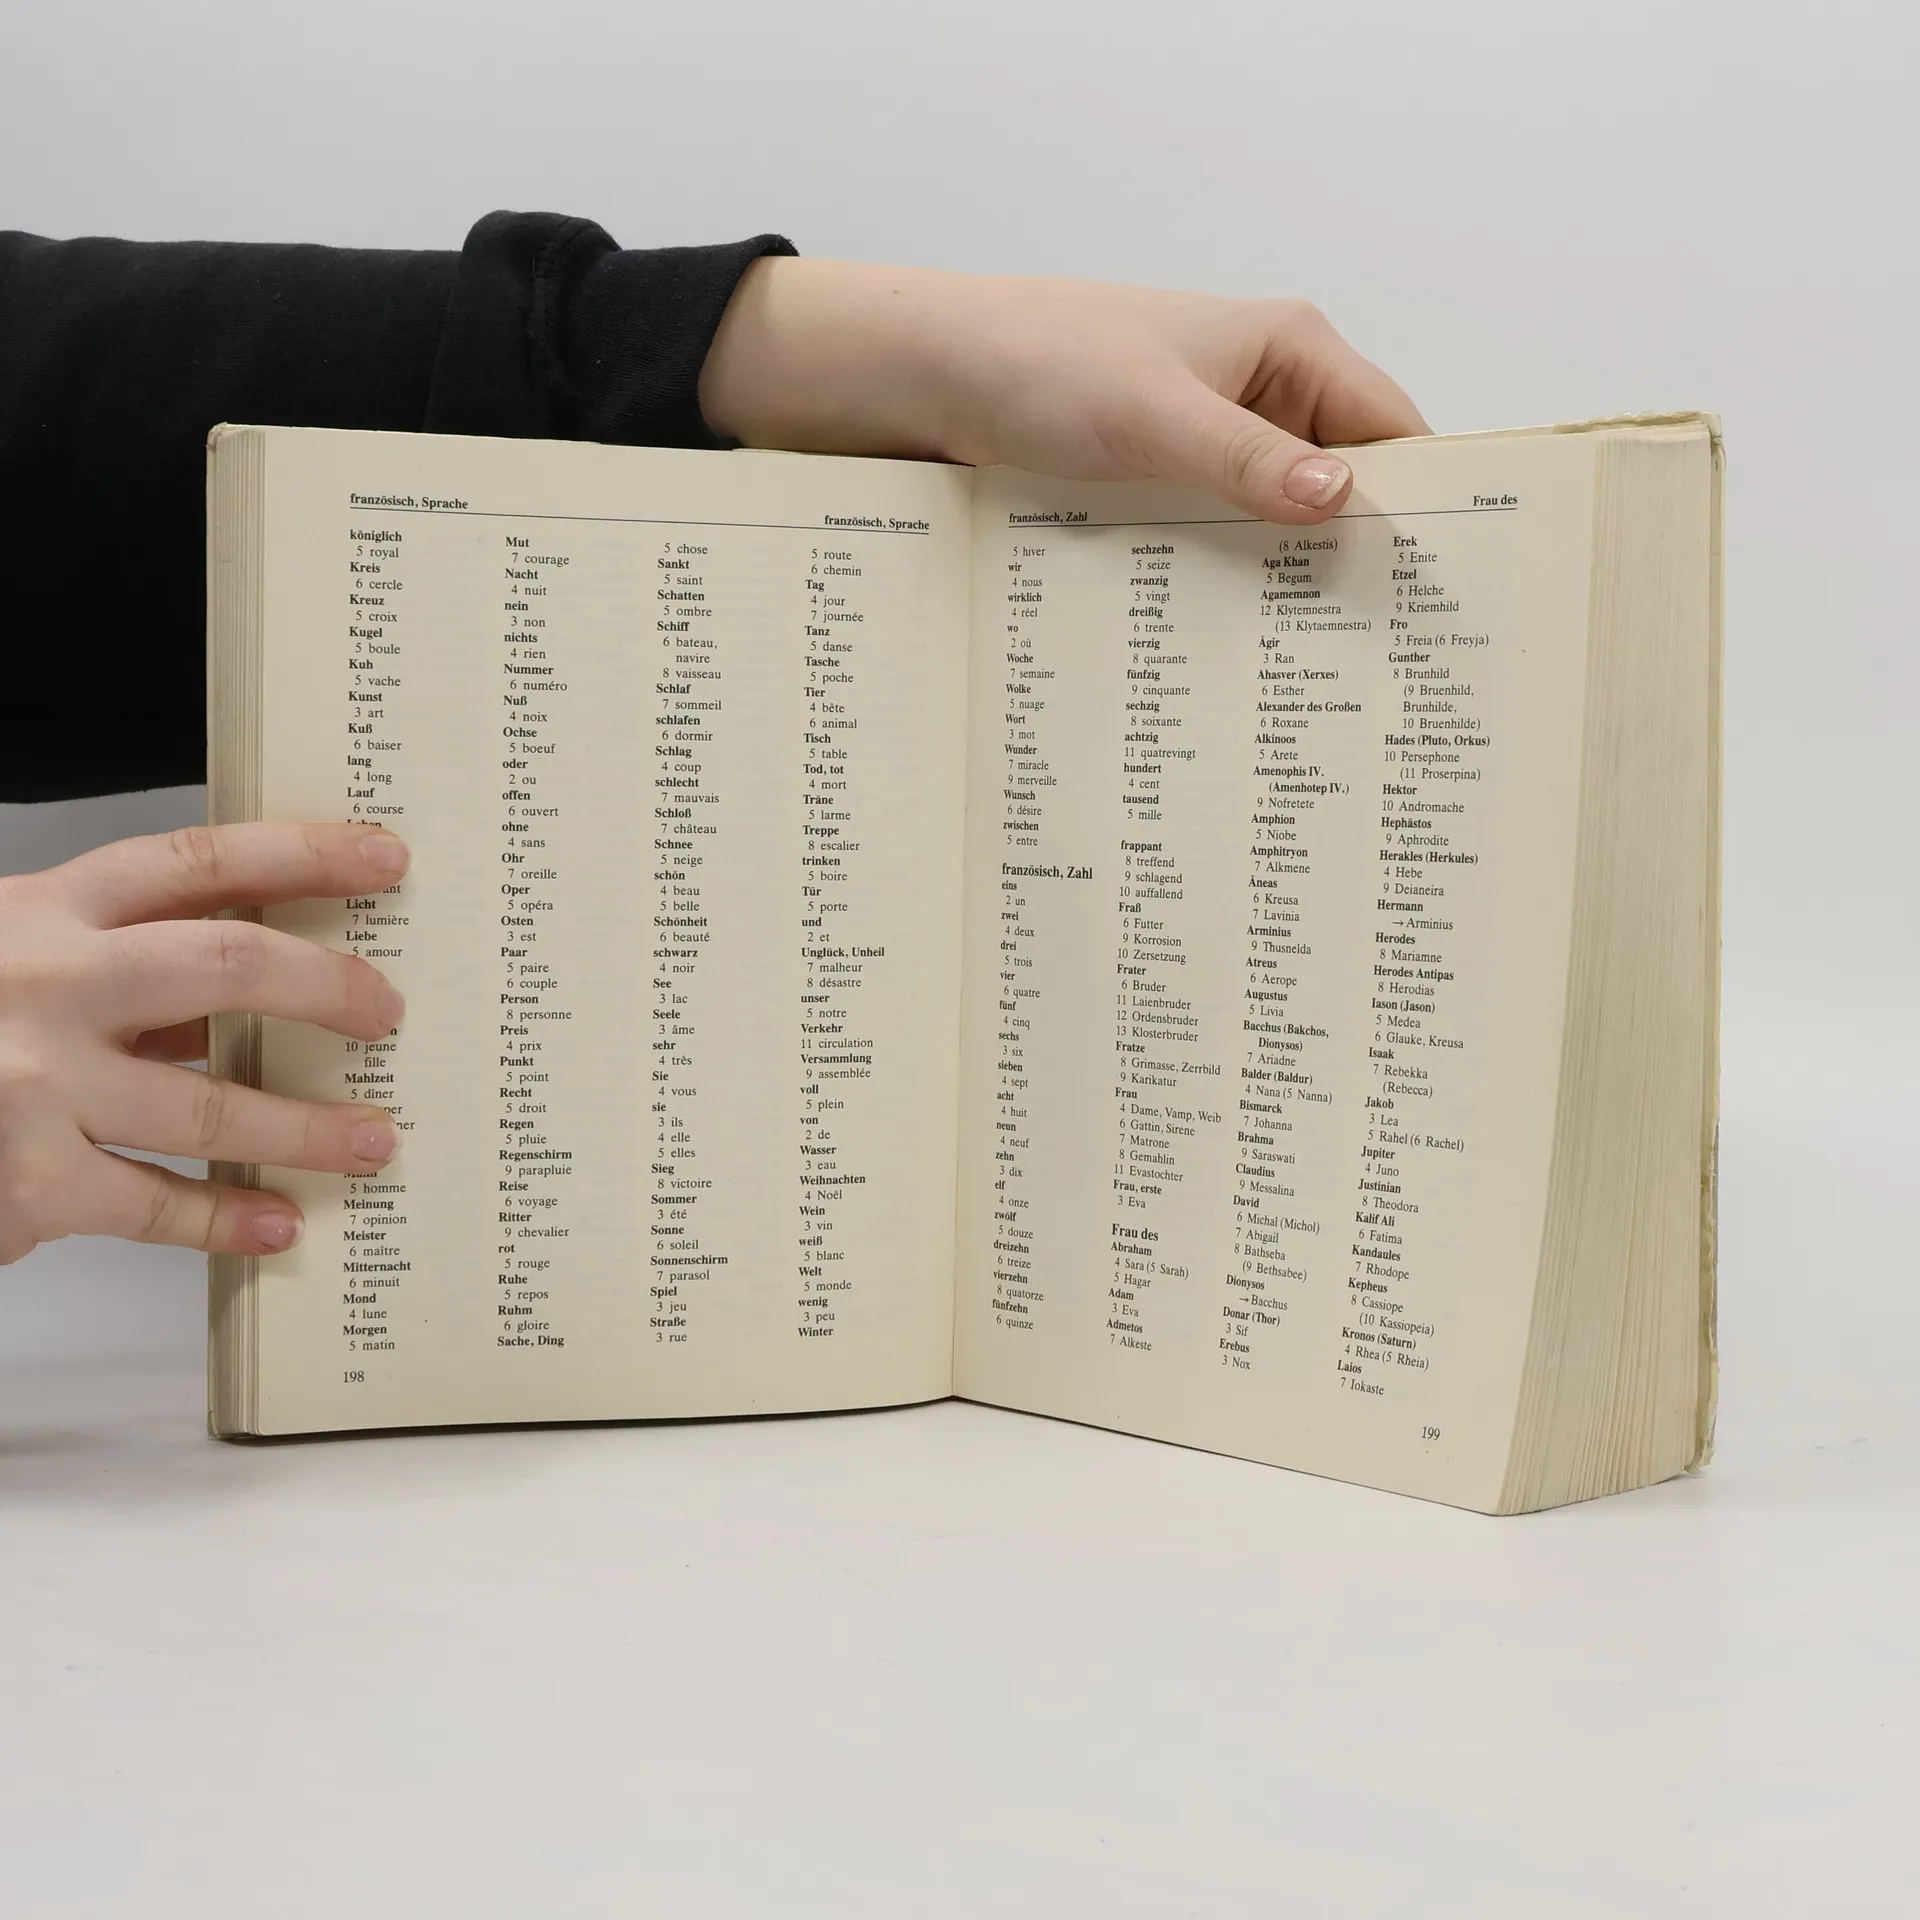 französisch, Sprache
französisch, Sprache
königlich
5 royal
Kreis
6 cercle
Kreuz
5 croix
Kugel
5 boule
Kuh
5 vache
Kunst
3 art
Kuß
6 baiser
lang
4 long
Lauf
6 course
Licht
7 lumière
Liebe
5 amour
10 jeune
fille
Mahlzeit
5 dîner
5 homme
Meinung
7 opinion
Meister
6 maître
Mitternacht
6 minuit
Mond
4 lune
Morgen
5 matin
Mut
7 courage
Nacht
4 nuit
nein
3 non
nichts
4 rien
Nummer
6 numéro
Nuß
4 noix
Ochse
5 boeuf
oder
2 ou
offen
6 ouvert
ohne
4 sans
Ohr
7 oreille
Oper
5 opéra
Osten
3 est
Paar
5 paire
6 couple
Person
8 personne
Preis
4 prix
Punkt
5 point
Recht
5 droit
Regen
5 pluie
Regenschirm
9 parapluie
Reise
6 voyage
Ritter
9 chevalier
rot
5 rouge
Ruhe
5 repos
Ruhm
6 gloire
Sache, Ding
5 chose
Sankt
5 saint
Schatten
5 ombre
Schiff
6 bateau,
navire
8 vaisseau
Schlaf
7 sommeil
schlafen
6 dormir
Schlag
4 coup
schlecht
7 mauvais
Schloß
7 château
Schnee
5 neige
schön
4 beau
5 belle
Schönheit
6 beauté
schwarz
4 noir
See
3 lac
Seele
3 âme
sehr
4 très
Sie
4 vous
sie
3 ils
4 elle
5 elles
Sieg
8 victoire
Sommer
3 été
Sonne
6 soleil
Sonnenschirm
7 parasol
Spiel
3 jeu
Straße
3 rue
5 route
6 chemin
Tag
4 jour
7 journée
Tanz
5 danse
Tasche
5 poche
Tier
4 bête
6 animal
Tisch
5 table
Tod, tot
4 mort
Träne
5 larme
Treppe
8 escalier
trinken
5 boire
Tür
5 porte
und
2 et
Unglück, Unheil
7 malheur
8 désastre
unser
5 notre
Verkehr
11 circulation
Versammlung
9 assemblée
voll
5 plein
von
2 de
Wasser
3 eau
Weihnachten
4 Noël
Wein
3 vin
weiß
5 blanc
Welt
5 monde
wenig
3 peu
Winter
198
französisch, Zahl
Frau des
5 hiver
wir
4 nous
wirklich
4 réel
wo
2 où
Woche
7 semaine
Wolke
5 nuage
Wort
3 mot
Wunder
7 miracle
9 merveille
Wunsch
6 désire
zwischen
5 entre
französisch, Zahl
eins
2 un
zwei
4 deux
drei
5 trois
vier
6 quatre
fünf
4 cinq
sechs
3 six
sieben
4 sept
acht
4 huit
neun
4 neuf
zehn
3 dix
elf
4 onze
zwölf
5 douze
dreizehn
6 treize
vierzehn
8 quatorze
fünfzehn
6 quinze
sechzehn
5 seize
zwanzig
5 vingt
dreißig
6 trente
vierzig
8 quarante
fünfzig
9 cinquante
sechzig
8 soixante
achtzig
11 quatrevingt
hundert
4 cent
tausend
5 mille
frappant
8 treffend
9 schlagend
10 auffallend
Fraß
6 Futter
9 Korrosion
10 Zersetzung
Frater
6 Bruder
11 Laienbruder
12 Ordensbruder
13 Klosterbruder
Fratze
8 Grimasse, Zerrbild
9 Karikatur
Frau
4 Dame, Vamp, Weib
6 Gattin, Sirene
7 Matrone
8 Gemahlin
11 Evastochter
Frau, erste
3 Eva
Frau des
Abraham
4 Sara (5 Sarah)
5 Hagar
Adam
3 Eva
Admetos
7 Alkeste
(8 Alkestis)
Aga Khan
5 Begum
Agamemnon
12 Klytemnestra
(13 Klytaemnestra)
Ägir
3 Ran
Ahasver (Xerxes)
6 Esther
Alexander des Großen
6 Roxane
Alkinoos
5 Arete
Amenophis IV.
(Amenhotep IV.)
9 Nofretete
Amphion
5 Niobe
Amphitryon
7 Alkmene
Äneas
6 Kreusa
7 Lavinia
Arminius
9 Thusnelda
Atreus
6 Aerope
Augustus
5 Livia
Bacchus (Bakchos,
Dionysos)
7 Ariadne
Balder (Baldur)
4 Nana (5 Nanna)
Bismarck
7 Johanna
Brahma
9 Saraswati
Claudius
9 Messalina
David
6 Michal (Michol)
7 Abigail
8 Bathseba
(9 Bethsabee)
Dionysos
→Bacchus
Donar (Thor)
3 Sif
Erebus
3 Nox
Erek
5 Enite
Etzel
6 Helche
9 Kriemhild
Fro
5 Freia (6 Freyja)
Gunther
8 Brunhild
(9 Bruenhild,
Brunhilde,
10 Bruenhilde)
Hades (Pluto, Orkus)
10 Persephone
(11 Proserpina)
Hektor
10 Andromache
Hephästos
9 Aphrodite
Herakles (Herkules)
4 Hebe
9 Deianeira
Hermann
→Arminius
Herodes
8 Mariamne
Herodes Antipas
8 Herodias
Iason (Jason)
5 Medea
6 Glauke, Kreusa
Isaak
7 Rebekka
(Rebecca)
Jakob
3 Lea
5 Rahel (6 Rachel)
Jupiter
4 Juno
Justinian
8 Theodora
Kalif Ali
6 Fatima
Kandaules
7 Rhodope
Kepheus
8 Cassiope
(10 Kassiopeia)
Kronos (Saturn)
4 Rhea (5 Rheia)
Laios
7 Iokaste
199